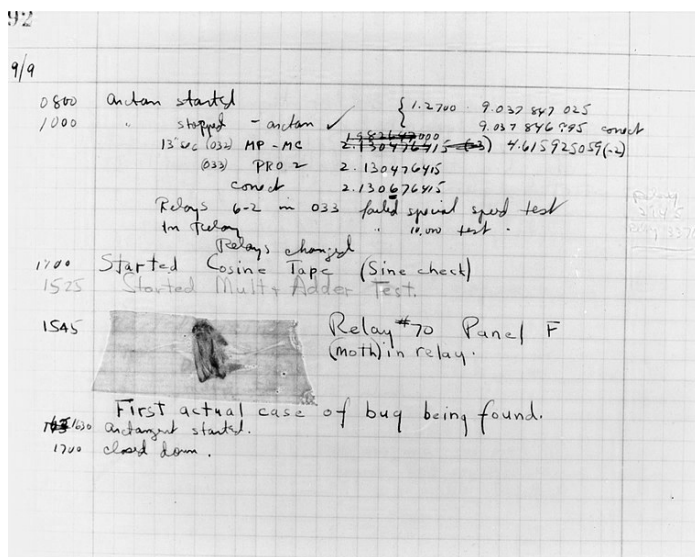 92
9/9
0800 Anctan started { 1.2700 9.037 847 025
1000 " stopped - anctan ✓ 9.037 846 795 conect
13"uc (032) MP - MC 2.130476415 (-3) 4.615925059(-2)
(033) PRO 2 2.130476415
conect 2.130676415
Relays 6-2 in 033 failed special speed test
In Relay " 10,000 test .
Relays changed
1700 Started Cosine Tape (Sine check)
1525 Started Mult + Adder Test.
1545 Relay #70 Panel F
(moth) in relay.
First actual case of bug being found.
1630 anctangent started.
1700 closed down .